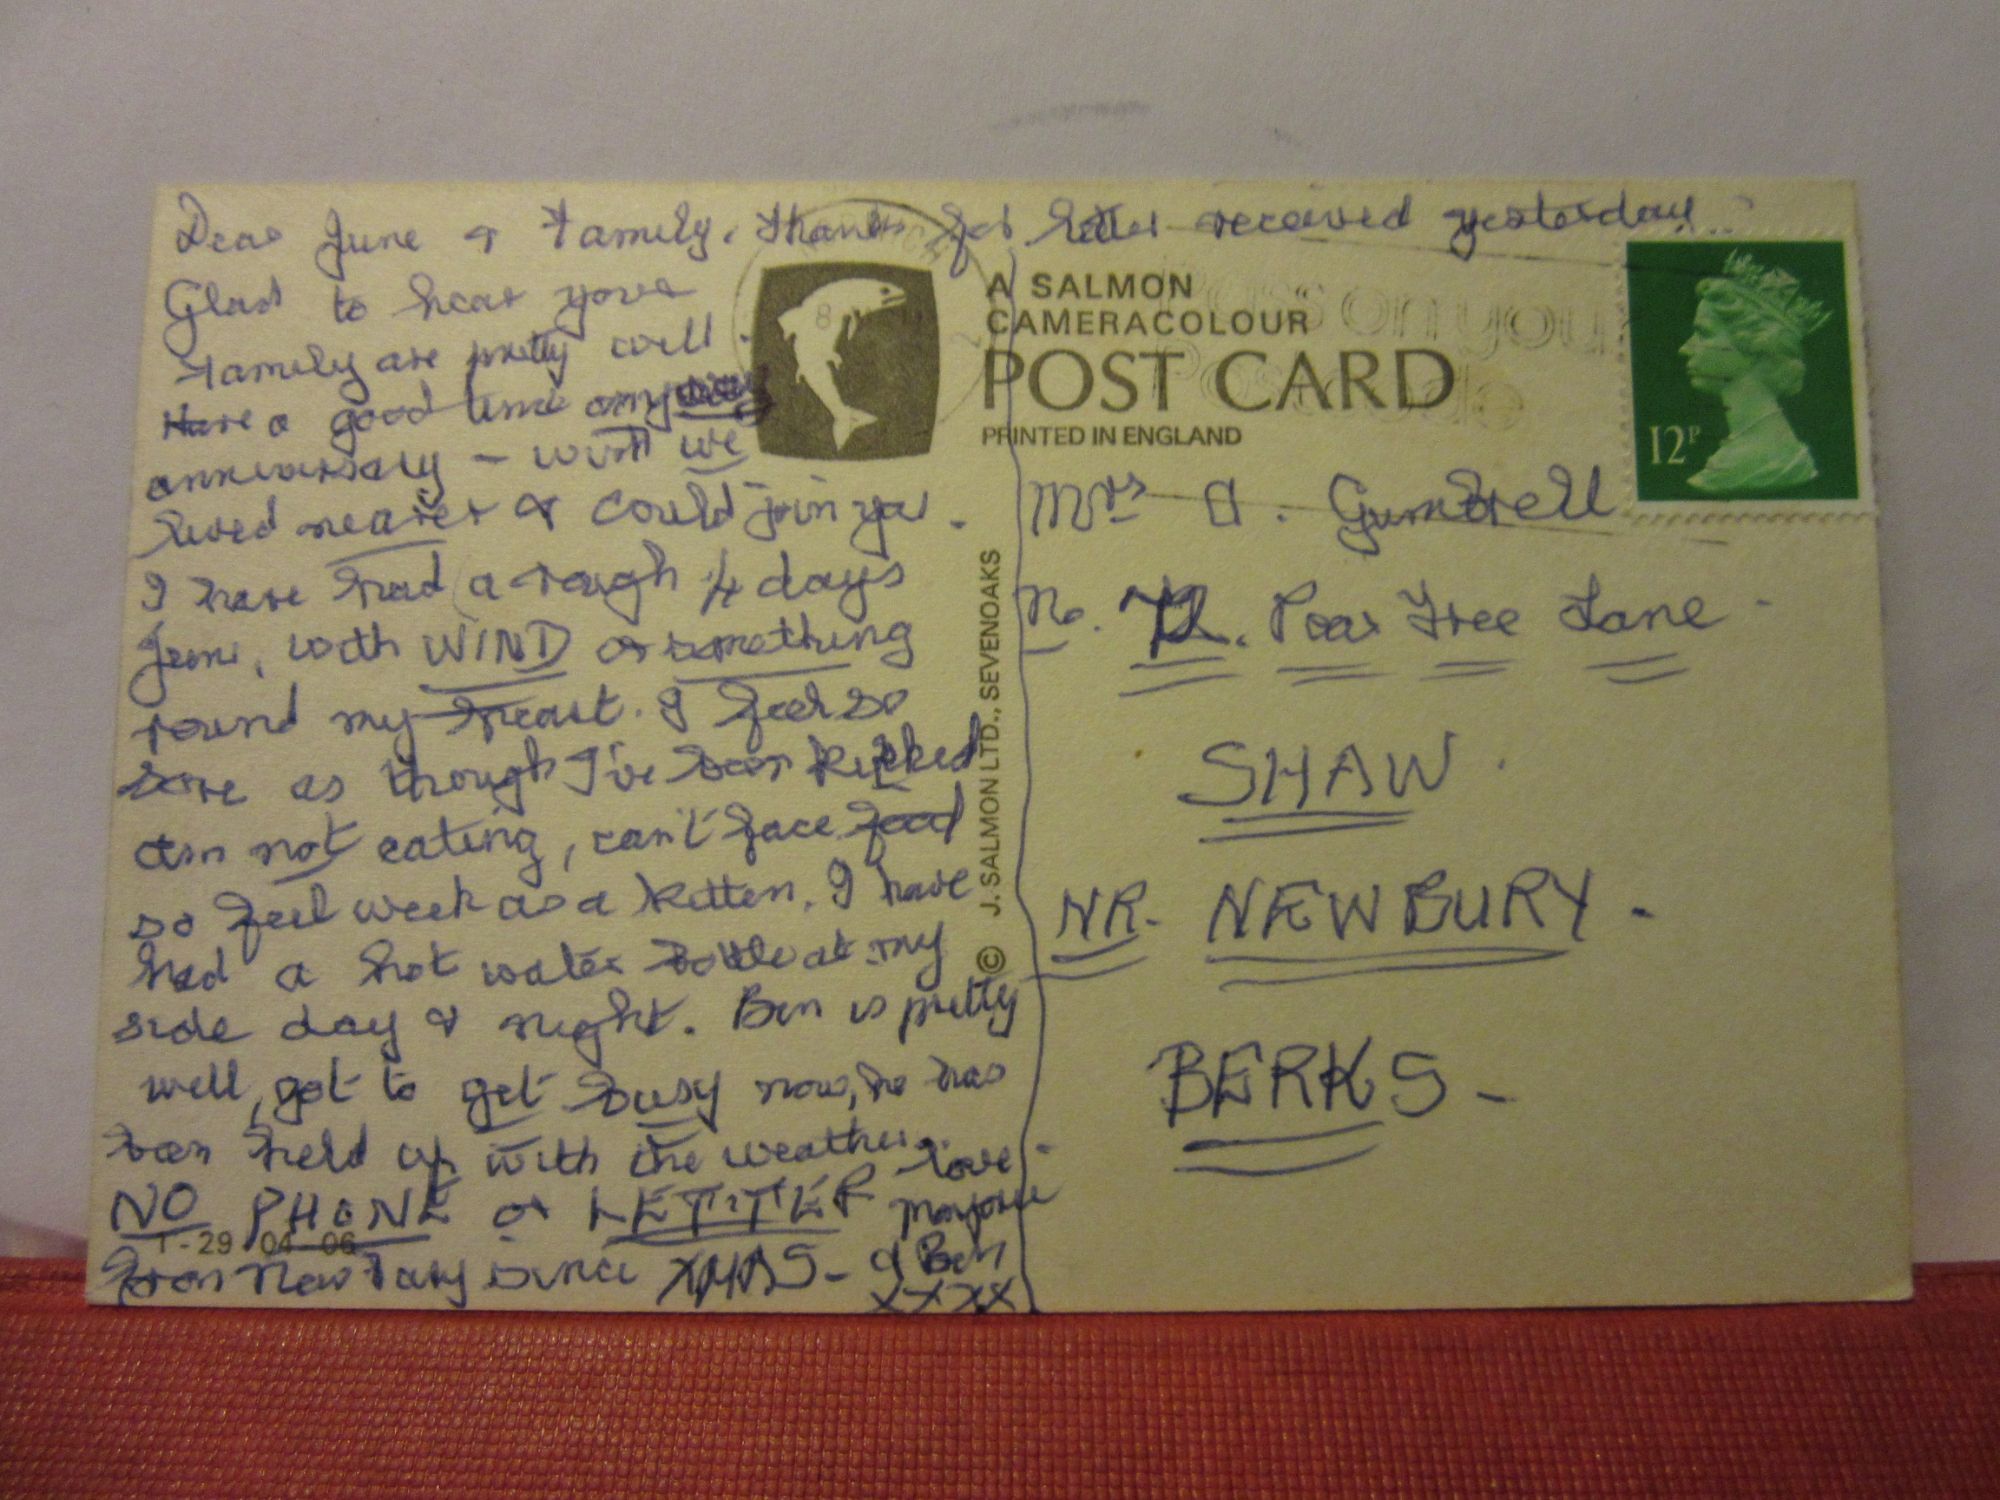 Dear June & Family. Thanks for letter received yesterday.
Glad to hear your
Family are pretty well.
Have a good time on
anniversary - wish we
lived nearer & could join you.
I have had a rough 4 days
June, with WIND or something
round my heart. I feel so
sore as though I've been kicked
Am not eating, can't face food
so feel week as a kitten. I have
had a hot water bottle at my
side day & night. Ben is pretty
well, got to get busy now, he has
been held up with the weather.
NO PHONE or LETTER
from since XMAS -
Love
Marjorie
& Ben
XXXX
T-29 04 06
A SALMON
CAMERACOLOUR
POST CARD
PRINTED IN ENGLAND
© J. SALMON LTD., SEVENOAKS
Pass on your
Postcode
12P
Mrs A. Gumbrell
No. 12. Pear Tree Lane
SHAW.
NR. NEWBURY.
BERKS -